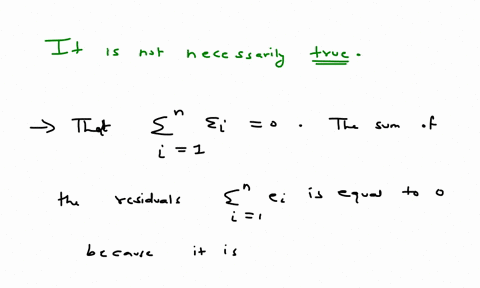 It is not necessarily true.
→ That ∑ⁿᵢ₌₁ εi = 0. The sum of
the residuals ∑ⁿᵢ₌₁ ei is equal to 0
because it is